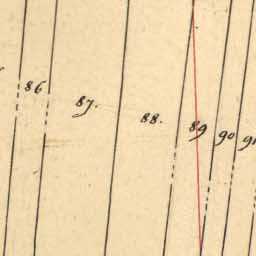 86 87. 88. 89 90 91